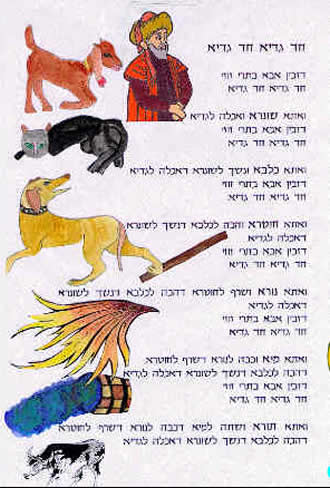 חד גדיא חד גדיא
דזבין אבא בתרי זוזי
חד גדיא חד גדיא
ואתא שונרא ואכלה לגדיא
דזבין אבא בתרי זוזי
חד גדיא חד גדיא
ואתא כלבא ונשך לשונרא דאכלה לגדיא
דזבין אבא בתרי זוזי
חד גדיא חד גדיא
ואתא חוטרא והכה לכלבא דנשך לשונרא
דאכלה לגדיא
דזבין אבא בתרי זוזי
חד גדיא חד גדיא
ואתא נורא ושרף לחוטרא דהכה לכלבא דנשך לשונרא
דאכלה לגדיא
דזבין אבא בתרי זוזי
חד גדיא חד גדיא
ואתא מיא וכבה לנורא דשרף לחוטרא
דהכה לכלבא דנשך לשונרא דאכלה לגדיא
דזבין אבא בתרי זוזי
חד גדיא חד גדיא
ואתא תורא ושתה למיא דכבה לנורא דשרף לחוטרא
דהכה לכלבא דנשך לשונרא דאכלה לגדיא